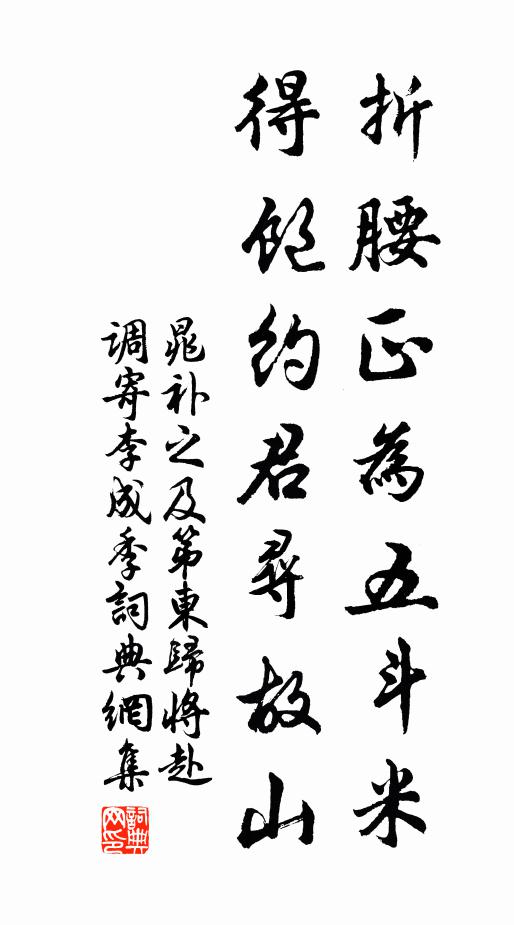 折腰正為五斗米
得飽約君尋故山
晁补之及第東歸將赴
调寄李成季詞典網集
詞典网印